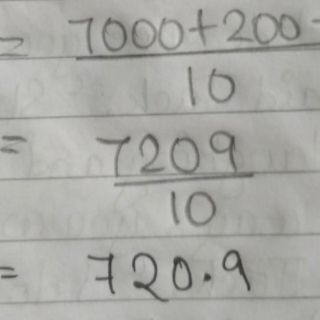 = 7000+200-
10
= 7209
10
= 720.9